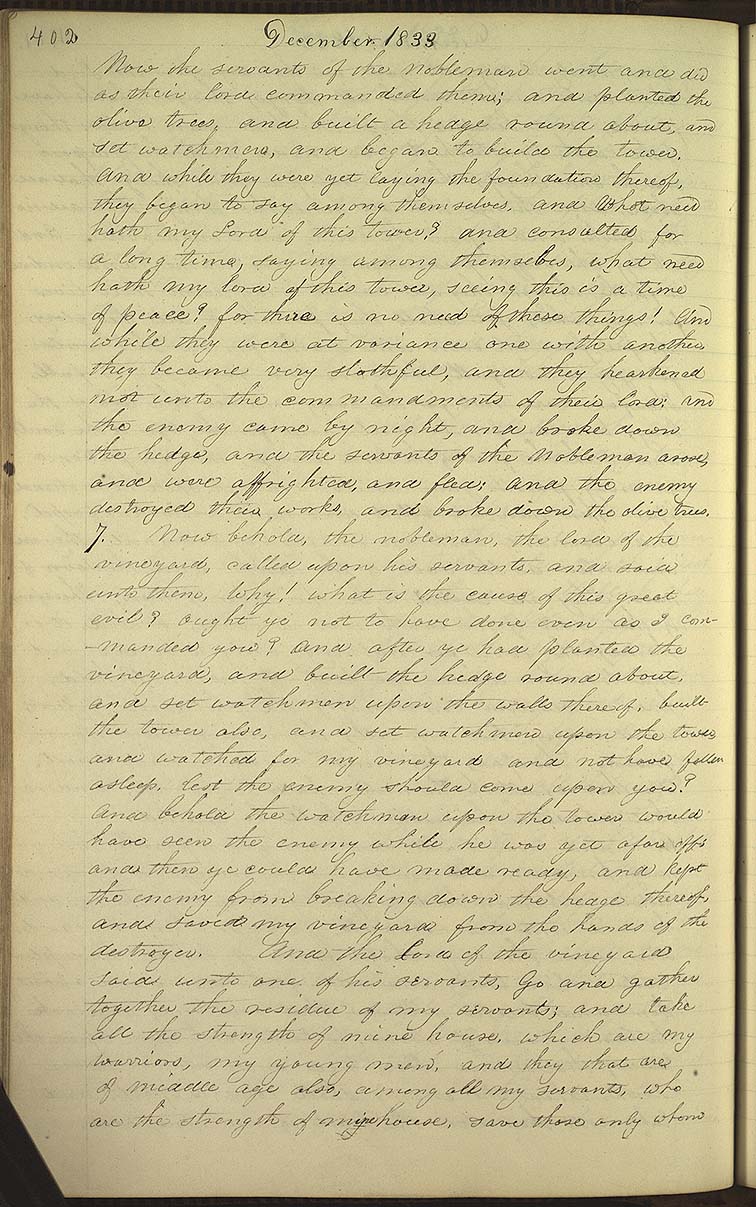 402 December 1833
Now the servants of the nobleman went and did
as their lord commanded them; and planted the
olive trees, and built a hedge round about, and
set watchmen, and began to build the tower.
And while they were yet laying the foundation thereof,
they began to say among themselves, and what need
hath my Lord of this tower? and consulted for
a long time, saying among themselves, what need
hath my lord of this tower, seeing this is a time
of peace? for there is no need of these things! And
while they were at variance one with another
they became very slothful, and they hearkened
not unto the commandments of their lord; and
the enemy came by night, and broke down
the hedge, and the servants of the Nobleman arose,
and were affrighted, and fled; and the enemy
destroyed their works, and broke down the olive trees.
7. Now behold, the nobleman, the lord of the
vineyard, called upon his servants, and said
unto them, Why! what is the cause of this great
evil? ought ye not to have done even as I com-
-manded you? and after ye had planted the
vineyard, and built the hedge round about,
and set watchmen upon the walls thereof, built
the tower also, and set watchmen upon the tower,
and watched for my vineyard and not have fallen
asleep, lest the enemy should come upon you?
And behold the watchman upon the tower would
have seen the enemy while he was yet afar off;
and then ye could have made ready, and kept
the enemy from breaking down the hedge thereof,
and saved my vineyard from the hands of the
destroyer. And the Lord of the vineyard
said unto one of his servants, Go and gather
together the residue of my servants; and take
all the strength of mine house, which are my
warriors, my young men, and they that are
of middle age also, among all my servants, who
are the strength of mine house, save those only whom